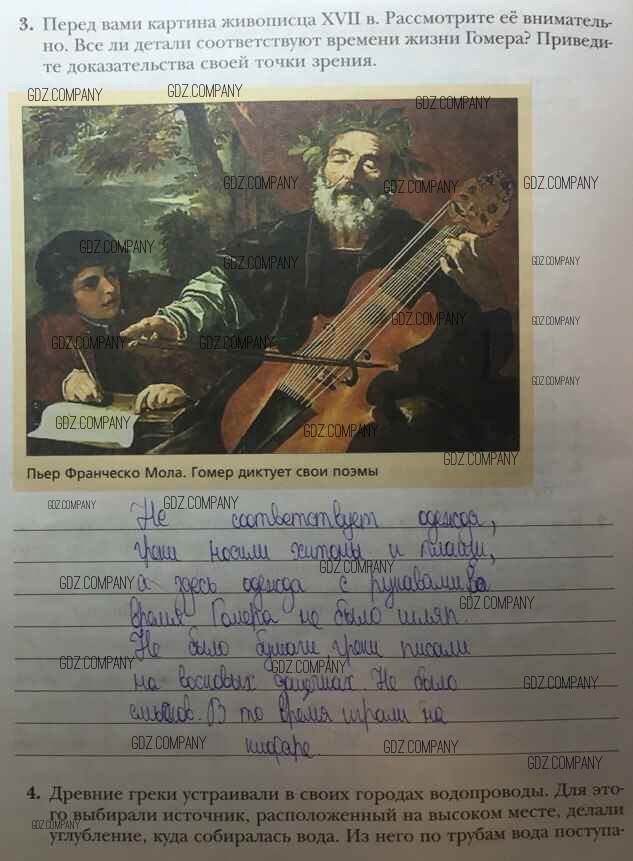 3. Перед вами картина живописца XVII в. Рассмотрите её вниматель-
но. Все ли детали соответствуют времени жизни Гомера? Приведи-
те доказательства своей точки зрения.
GDZ.COMPANY GDZ.COMPANY GDZ.COMPANY
GDZ.COMPANY GDZ.COMPANY GDZ.COMPANY
GDZ.COMPANY GDZ.COMPANY GDZ.COMPANY
GDZ.COMPANY GDZ.COMPANY
GDZ.COMPANY GDZ.COMPANY
GDZ.COMPANY
GDZ.COMPANY GDZ.COMPANY
GDZ.COMPANY
Пьер Франческо Мола. Гомер диктует свои поэмы
GDZ.COMPANY
GDZ.COMPANY GDZ.COMPANY
Не соответствует одежда,
греки носили хитоны и плащи,
GDZ.COMPANY
а здесь одежда с рукавами. Во
GDZ.COMPANY GDZ.COMPANY
время Гомера не было шляп.
Не было бумаги, греки писали
GDZ.COMPANY GDZ.COMPANY
на восковых дощечках. Не было
GDZ.COMPANY
смычков. В то время играли на
кифаре.
GDZ.COMPANY GDZ.COMPANY GDZ.COMPANY
4. Древние греки устраивали в своих городах водопроводы. Для это-
го выбирали источник, расположенный на высоком месте, делали
GDZ.COMPANY
углубление, куда собиралась вода. Из него по трубам вода поступа-